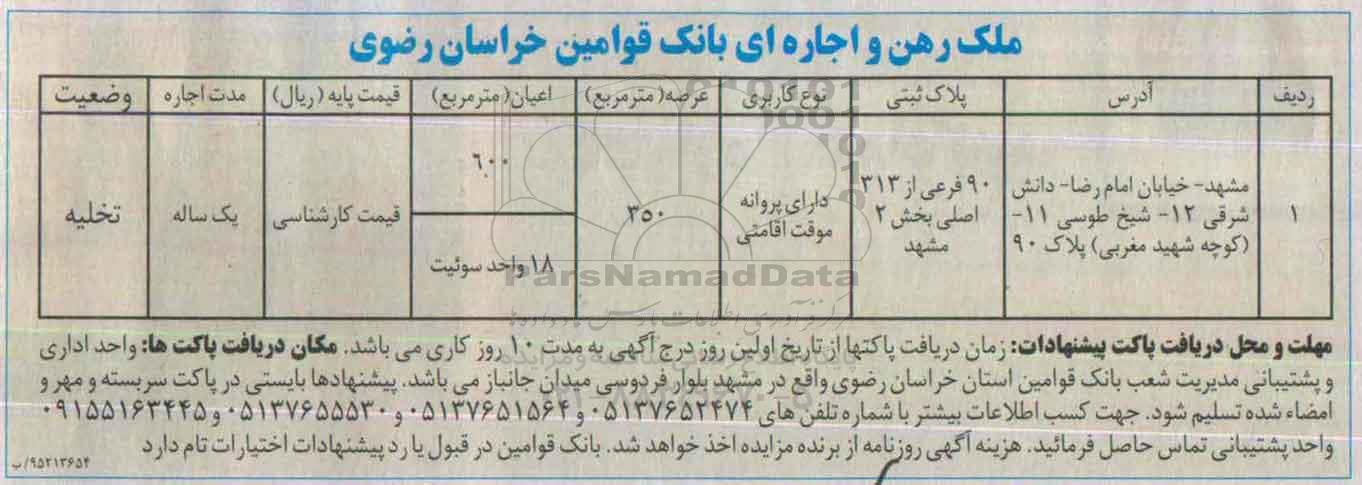 ملک رهن و اجاره ای بانک قوامین خراسان رضوی
ردیف آدرس پلاک ثبتی نوع کاربری عرصه (مترمربع) اعیان (مترمربع) قیمت پایه (ریال) مدت اجاره وضعیت
۱ مشهد- خیابان امام رضا- دانش شرقی ۱۲- شیخ طوسی ۱۱- (کوچه شهید مغربی) پلاک ۹۰ ۹۰ فرعی از ۳۱۳ اصلی بخش ۲ مشهد دارای پروانه موقت اقامتی ۳۵۰ ۶۰۰ ۱۸ واحد سوئیت قیمت کارشناسی یک ساله تخلیه
ParsNamadData
مهلت و محل دریافت پاکت پیشنهادات: زمان دریافت پاکتها از تاریخ اولین روز درج آگهی به مدت ۱۰ روز کاری می باشد. مکان دریافت پاکت ها: واحد اداری
و پشتیبانی مدیریت شعب بانک قوامین استان خراسان رضوی واقع در مشهد بلوار فردوسی میدان جانباز می باشد. پیشنهادها بایستی در پاکت سربسته و مهر و
امضاء شده تسلیم شود. جهت کسب اطلاعات بیشتر با شماره تلفن های ۰۵۱۳۷۶۵۲۴۷۴ و ۰۵۱۳۷۶۵۱۵۶۴ و ۰۵۱۳۷۶۵۵۵۳۰ و ۰۹۱۵۵۱۶۳۴۴۵
واحد پشتیبانی تماس حاصل فرمائید. هزینه آگهی روزنامه از برنده مزایده اخذ خواهد شد. بانک قوامین در قبول یا رد پیشنهادات اختیارات تام دارد
۹۵۲۱۳۶۵۴/ب